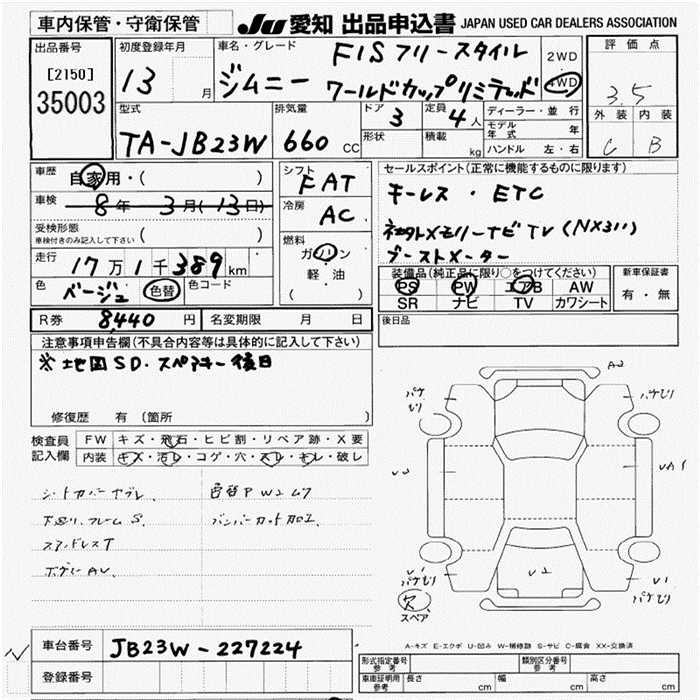 車内保管・守衛保管
JU 愛知 出品申込書 JAPAN USED CAR DEALERS ASSOCIATION
出品番号
[2150]
35003
初度登録年月
13 月
車名・グレード
FISフリースタイル
ジムニー ワールドカップリミテッド
2WD
・
4WD
評価点
3.5
外装 内装
C B
型式
TA-JB23W
排気量
660 CC
ドア 3
形状
定員 4 人
積載 kg
ディーラー・並行
モデル年式 年
ハンドル 左・右
車歴 自家用・( )
車検 8年 3月(13日)
受検形態
車検付きのみ記入して下さい ( )
走行 17万1千389km
色 ベージュ 色替 色コード
シフト
FAT
冷房
AC
燃料
ガソリン
軽・油
( )
セールスポイント(正常に機能するものに限ります)
キーレス・ETC
社外メモリーナビTV(NX311)
ブーストメーター
装備品(純正品に限り○をつけてください)
PS PW エアB AW
SR ナビ TV カワシート
新車保証書
有・無
R券 8,440 円 名変期限 月 日
後日品
注意事項申告欄(不具合内容等は具体的に記入して下さい)
※地図SD・スペアキー後日
修復歴 有 (箇所
検査員記入欄
FW キズ・飛石・ヒビ割・リペア跡・X要
内装 キズ・汚レ・コゲ・穴・スレ・キレ・破レ
シートカバーヤブレ
下回リ、フレームS
ステアハンドルスT
ボディーAU
色替P W2ムラ
バンパーカット加工
A2
U2
UA1
U2
V1
V1
欠
スペア
A-キズ E-エクボ U-凹み W-補修跡 S-サビ C-腐食 XX-交換済
車台番号 JB23W-227224
登録番号
形式指定番号 参考
類別区分番号 参考
車庫証明用 参考 長さ cm 幅 cm 高さ cm